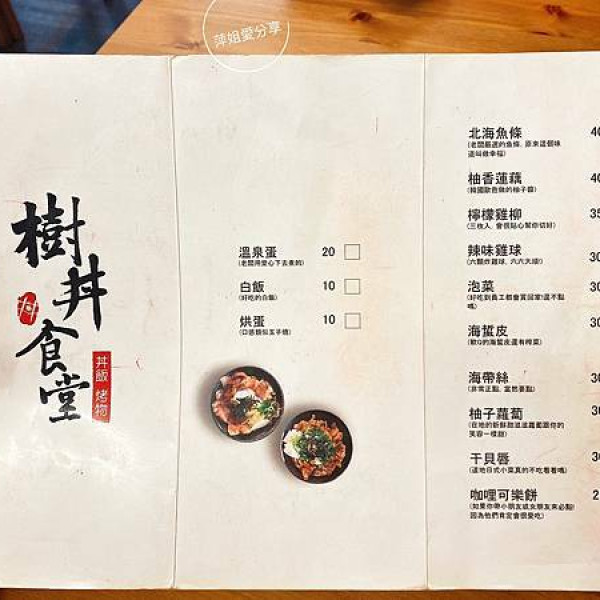 萍姐愛分享
樹丼食堂
丼
丼飯 烤物
溫泉蛋 20
(老闆用愛心下去煮的)
白飯 10
(好吃的白飯)
烘蛋 10
(口感類似玉子燒)
北海魚條 40
(老闆嚴選的魚條, 原來這個味
道叫做幸福)
柚香蓮藕 40
(韓國歐爸做的柚子醬)
檸檬雞柳 35
(三枚入, 會很貼心幫你切好)
辣味雞球 30
(六顆炸雞球, 六六大順!)
泡菜 30
(好吃到員工都會買回家!還不點
嗎)
海蜇皮 30
(軟Q的海蜇皮還有榨菜)
海帶絲 30
(非常正點, 當然要點)
柚子蘿蔔 30
(在地的新鮮甜滋滋蘿蔔跟你的
笑容一樣甜)
干貝唇 30
(道地日式小菜真的不吃看看嗎)
咖哩可樂餅 2
(如果你帶小朋友或女朋友來必點!
因為他們肯定會很愛吃)